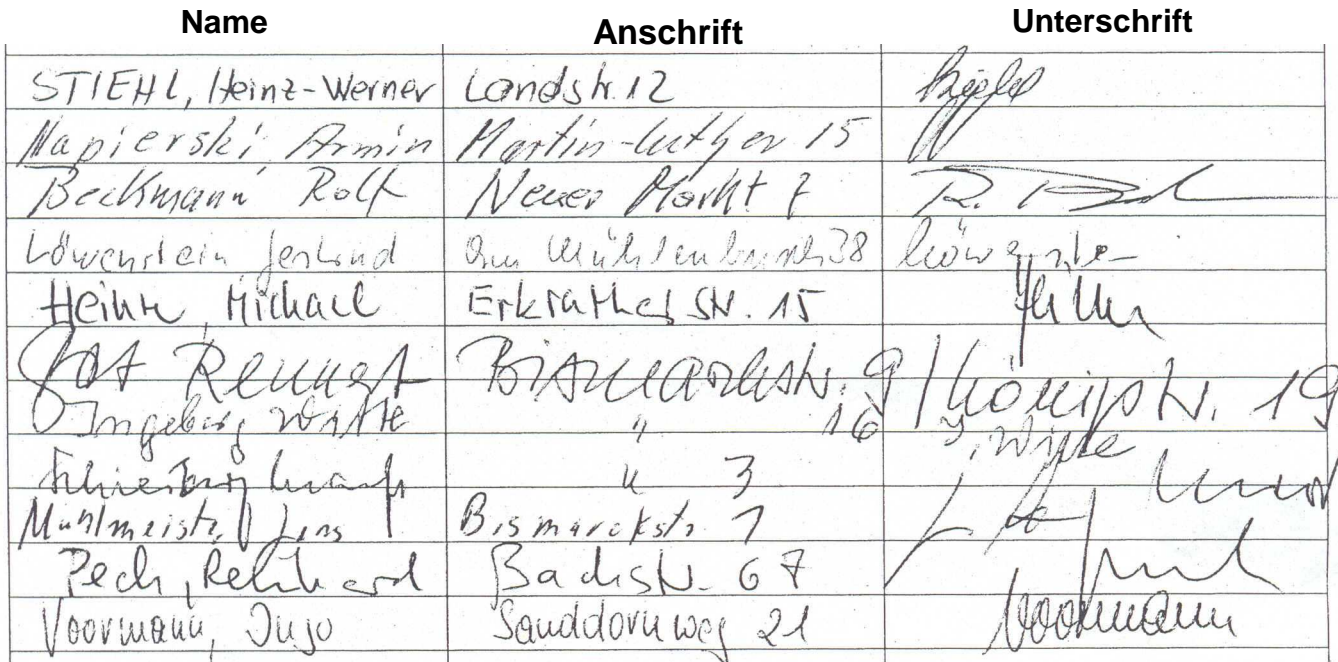 Name Anschrift Unterschrift
STIEHL, Heinz-Werner Landstr. 12
Napierski, Armin Martin-Luther 15
Beckmann, Rolf Neuer Markt 7 R.
Löwenstein, Am Mühlenbusch 38 Löwenste
Heink, Michael Erkrather Str. 15
Bismarckstr. 9 / Königstr. 19
Ingeborg Witte " 16 I. Witte
" 3
Mühlmeister, Jens Bismarckstr. 1
Pech, Reinhard Bachstr. 67
Voormann, Ingo Sanddornweg 21 Voormann